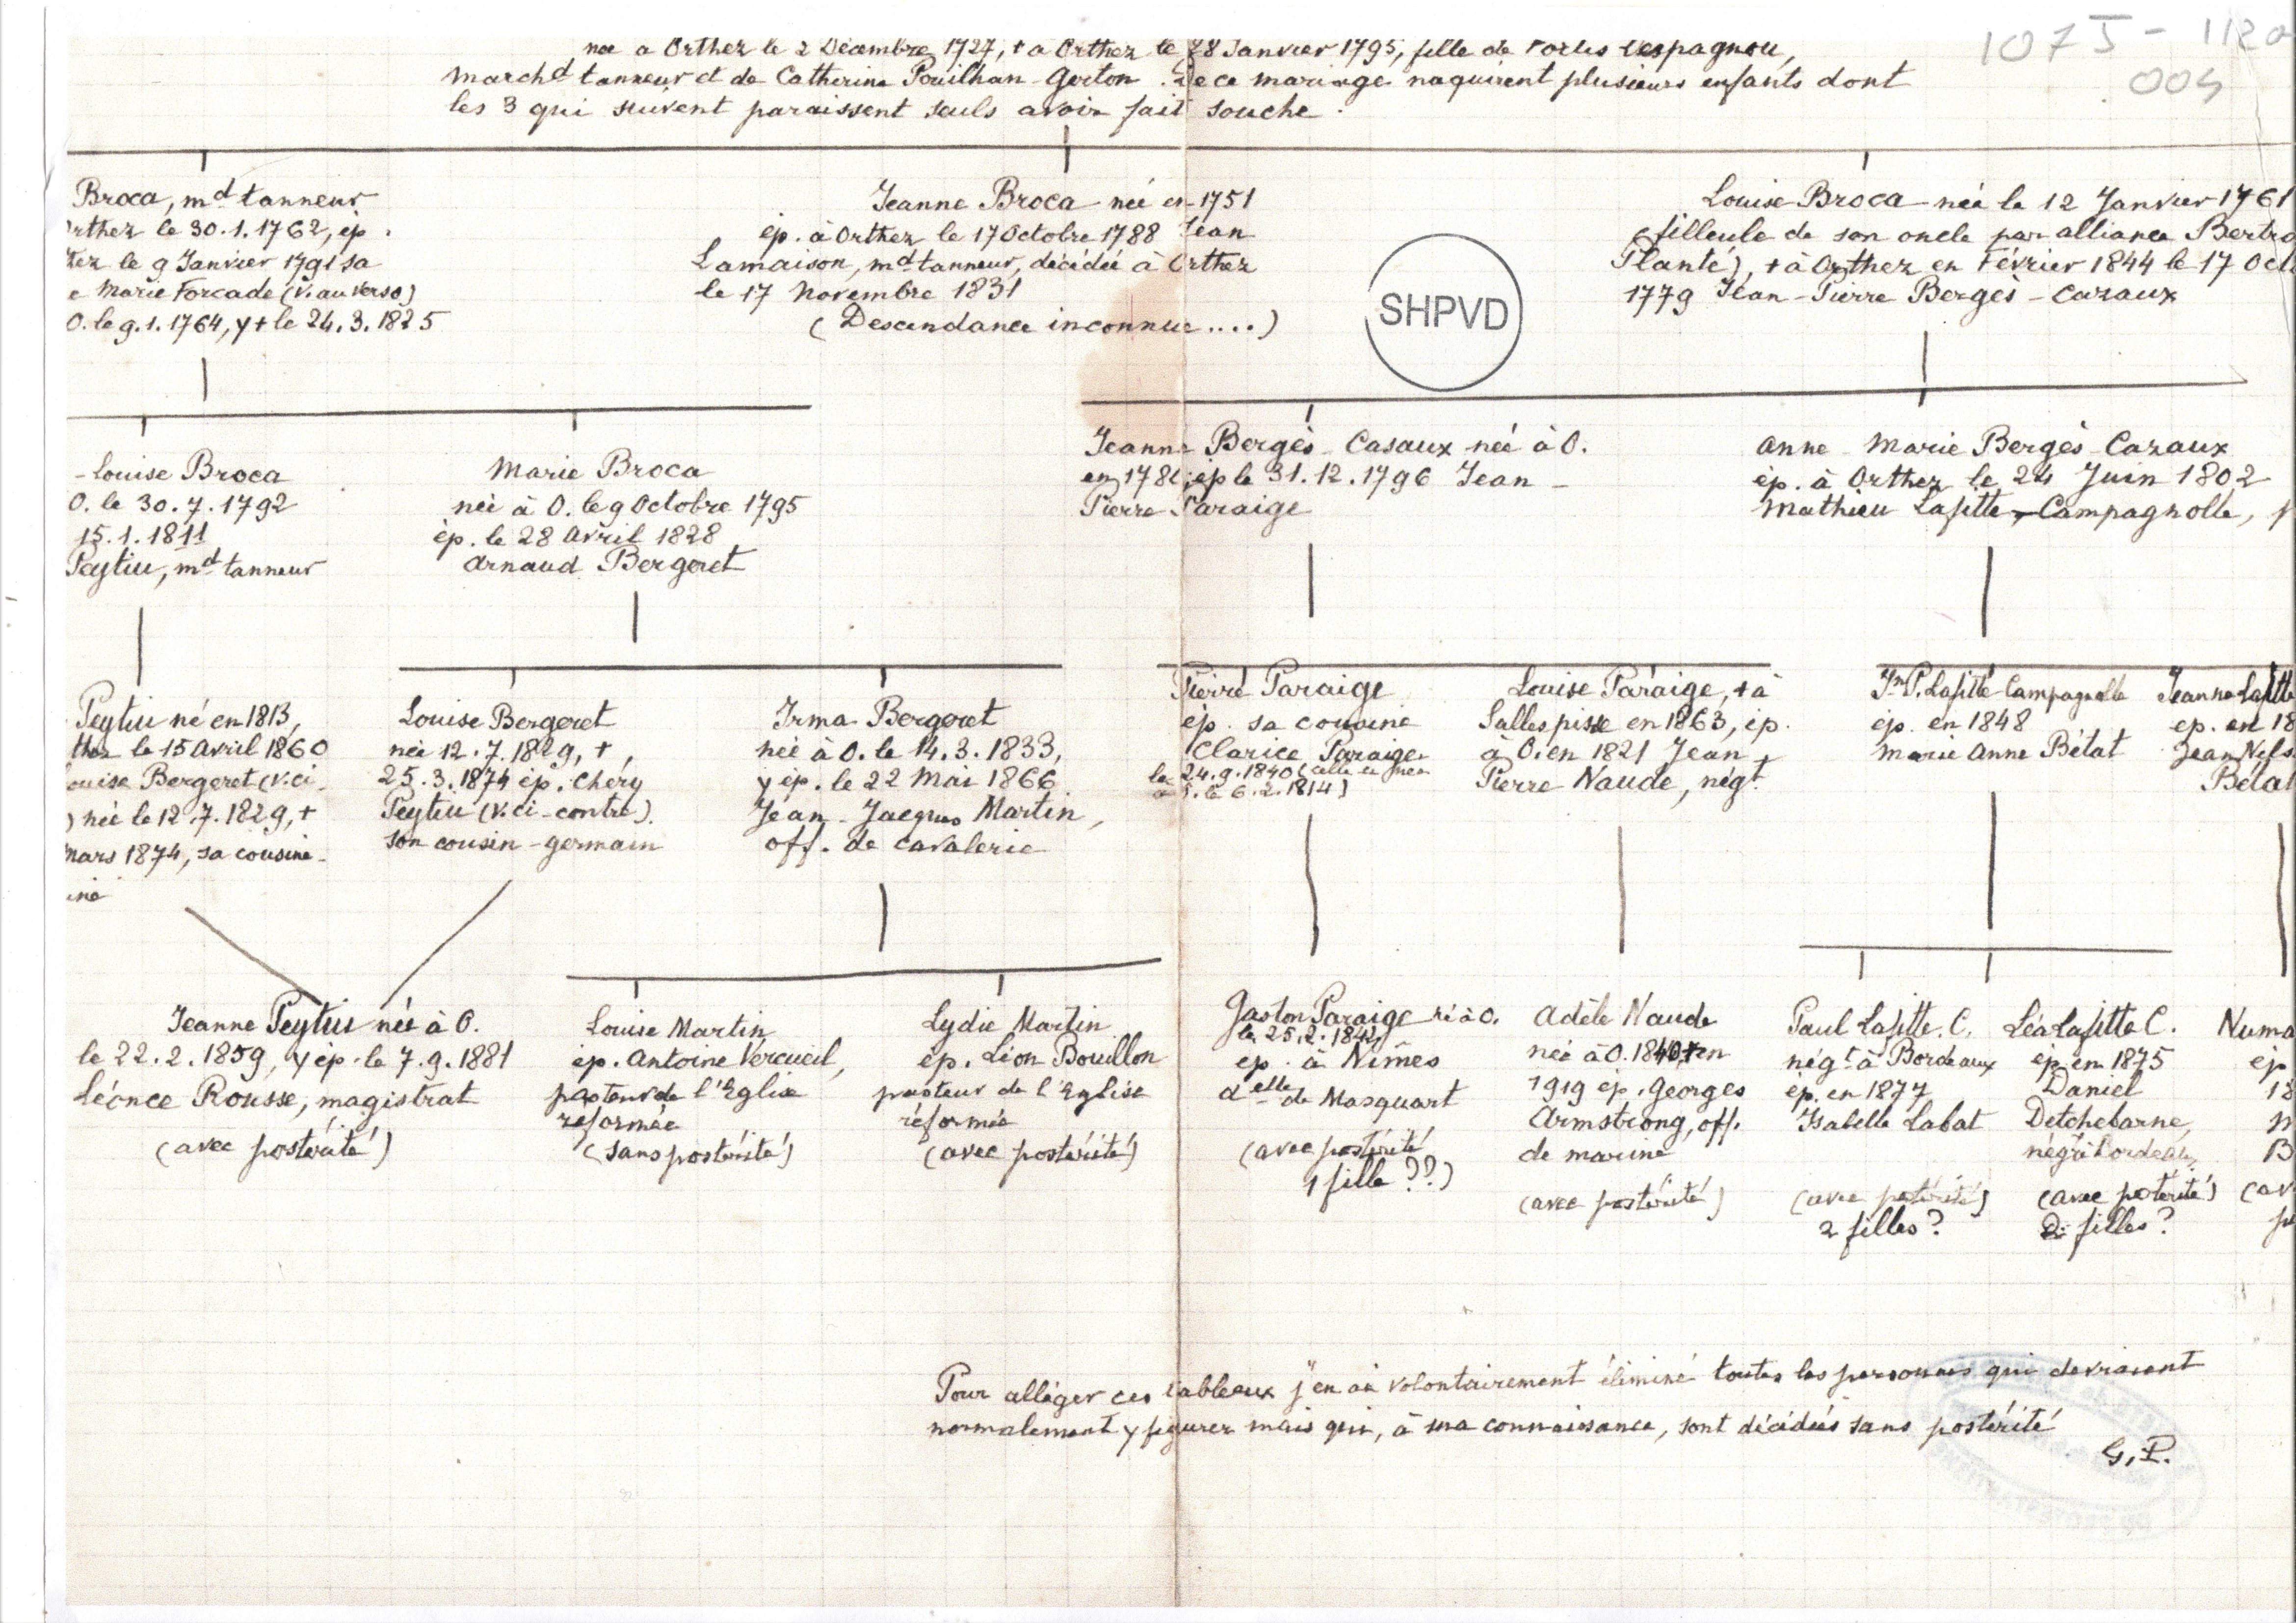 1075 - 112
004
née à Orthez le 2 Décembre 1727, + à Orthez le 28 Janvier 1795, fille de
marchd tanneur et de Catherine Pouilhan-Gorton. De ce mariage naquirent plusieurs enfants dont
les 3 qui suivent paraissent seuls avoir fait souche.
Broca, md tanneur
rthez le 30.1.1762, ép.
le 9 Janvier 1791 sa
Marie Forcade (v. au verso)
O. le 9.1.1764, y + le 24.3.1825
Jeanne Broca née en 1751
ép. à Orthez le 17 Octobre 1788 Jean
Lamaison, md tanneur, décédée à Orthez
le 17 Novembre 1831
(Descendance inconnue....)
SHPVD
Louise Broca née le 12 Janvier 1761
(filleule de son oncle par alliance Bertra
Planté), + à Orthez en Février 1844 le 17 Oct
1779 Jean-Pierre Bergès-Cazaux
-Louise Broca
O. le 30.7.1792
15.1.1811
Peytiu, md tanneur
Marie Broca
née à O. le 9 Octobre 1795
ép. le 28 Avril 1828
Arnaud Bergeret
Jeanne Bergès-Casaux née à O.
ép le 31.12.1796 Jean-
Pierre Paraige
Anne-Marie Bergès-Cazaux
ép. à Orthez le 24 Juin 1802
Mathieu Lafitte-Campagnolle,
Peytiu né en 1813,
le 15 Avril 1860
ouise Bergeret (v. ci-
) née le 12.7.1829, +
mars 1874, sa cousine-
ine
Louise Bergeret
née 12.7.1829, +,
25.3.1874 ép. Chéry
Peytiu (v. ci-contre).
son cousin-germain
Irma Bergeret
née à O. le 14.3.1833,
y ép. le 22 Mai 1866
Jean-Jacques Martin,
off. de cavalerie
Pierre Paraige
ép. sa cousine
Clarice Paraige
le 24.9.1840 (celle-ci née
à O. le 6.2.1814)
Louise Paraige, + à
Sallespisse en 1863, ép.
à O. en 1821 Jean
Pierre Naude, négt
Jn P. Lafitte-Campagnolle
ép. en 1848
Marie Anne Bétat
Jeanne Lafitte
ep. en 18
Jean
Bétat
Jeanne Peytiu née à O.
le 22.2.1859, y ép. le 7.9.1881
Léonce Rousse, magistrat
(avec postérité)
Louise Martin
ép. Antoine Vercueil,
pasteur de l'Eglise
réformée
(sans postérité)
Lydie Martin
ép. Léon Bouillon
pasteur de l'Eglise
réformée
(avec postérité)
Gaston Paraige né à O.
le 25.2.1842,
ep. à Nîmes
delle de Masquart
(avec postérité
1 fille ??)
Adèle Naude
née à O. 1840, + en
1919 ép. Georges
Armstrong, off.
de marine
(avec postérité)
Paul Lafitte. C.
négt à Bordeaux
ép. en 1877
Isabelle Labat
(avec postérité)
2 filles ?
Léa Lafitte C.
ép. en 1875
Daniel
Detchebarne,
négt à Bordeaux
(avec postérité)
2 filles ?
Numa
ép
18
B
(av
Pour alléger ces tableaux j'en ai volontairement éliminé toutes les personnes qui devraient
normalement y figurer mais qui, à ma connaissance, sont décédées sans postérité
G.P.